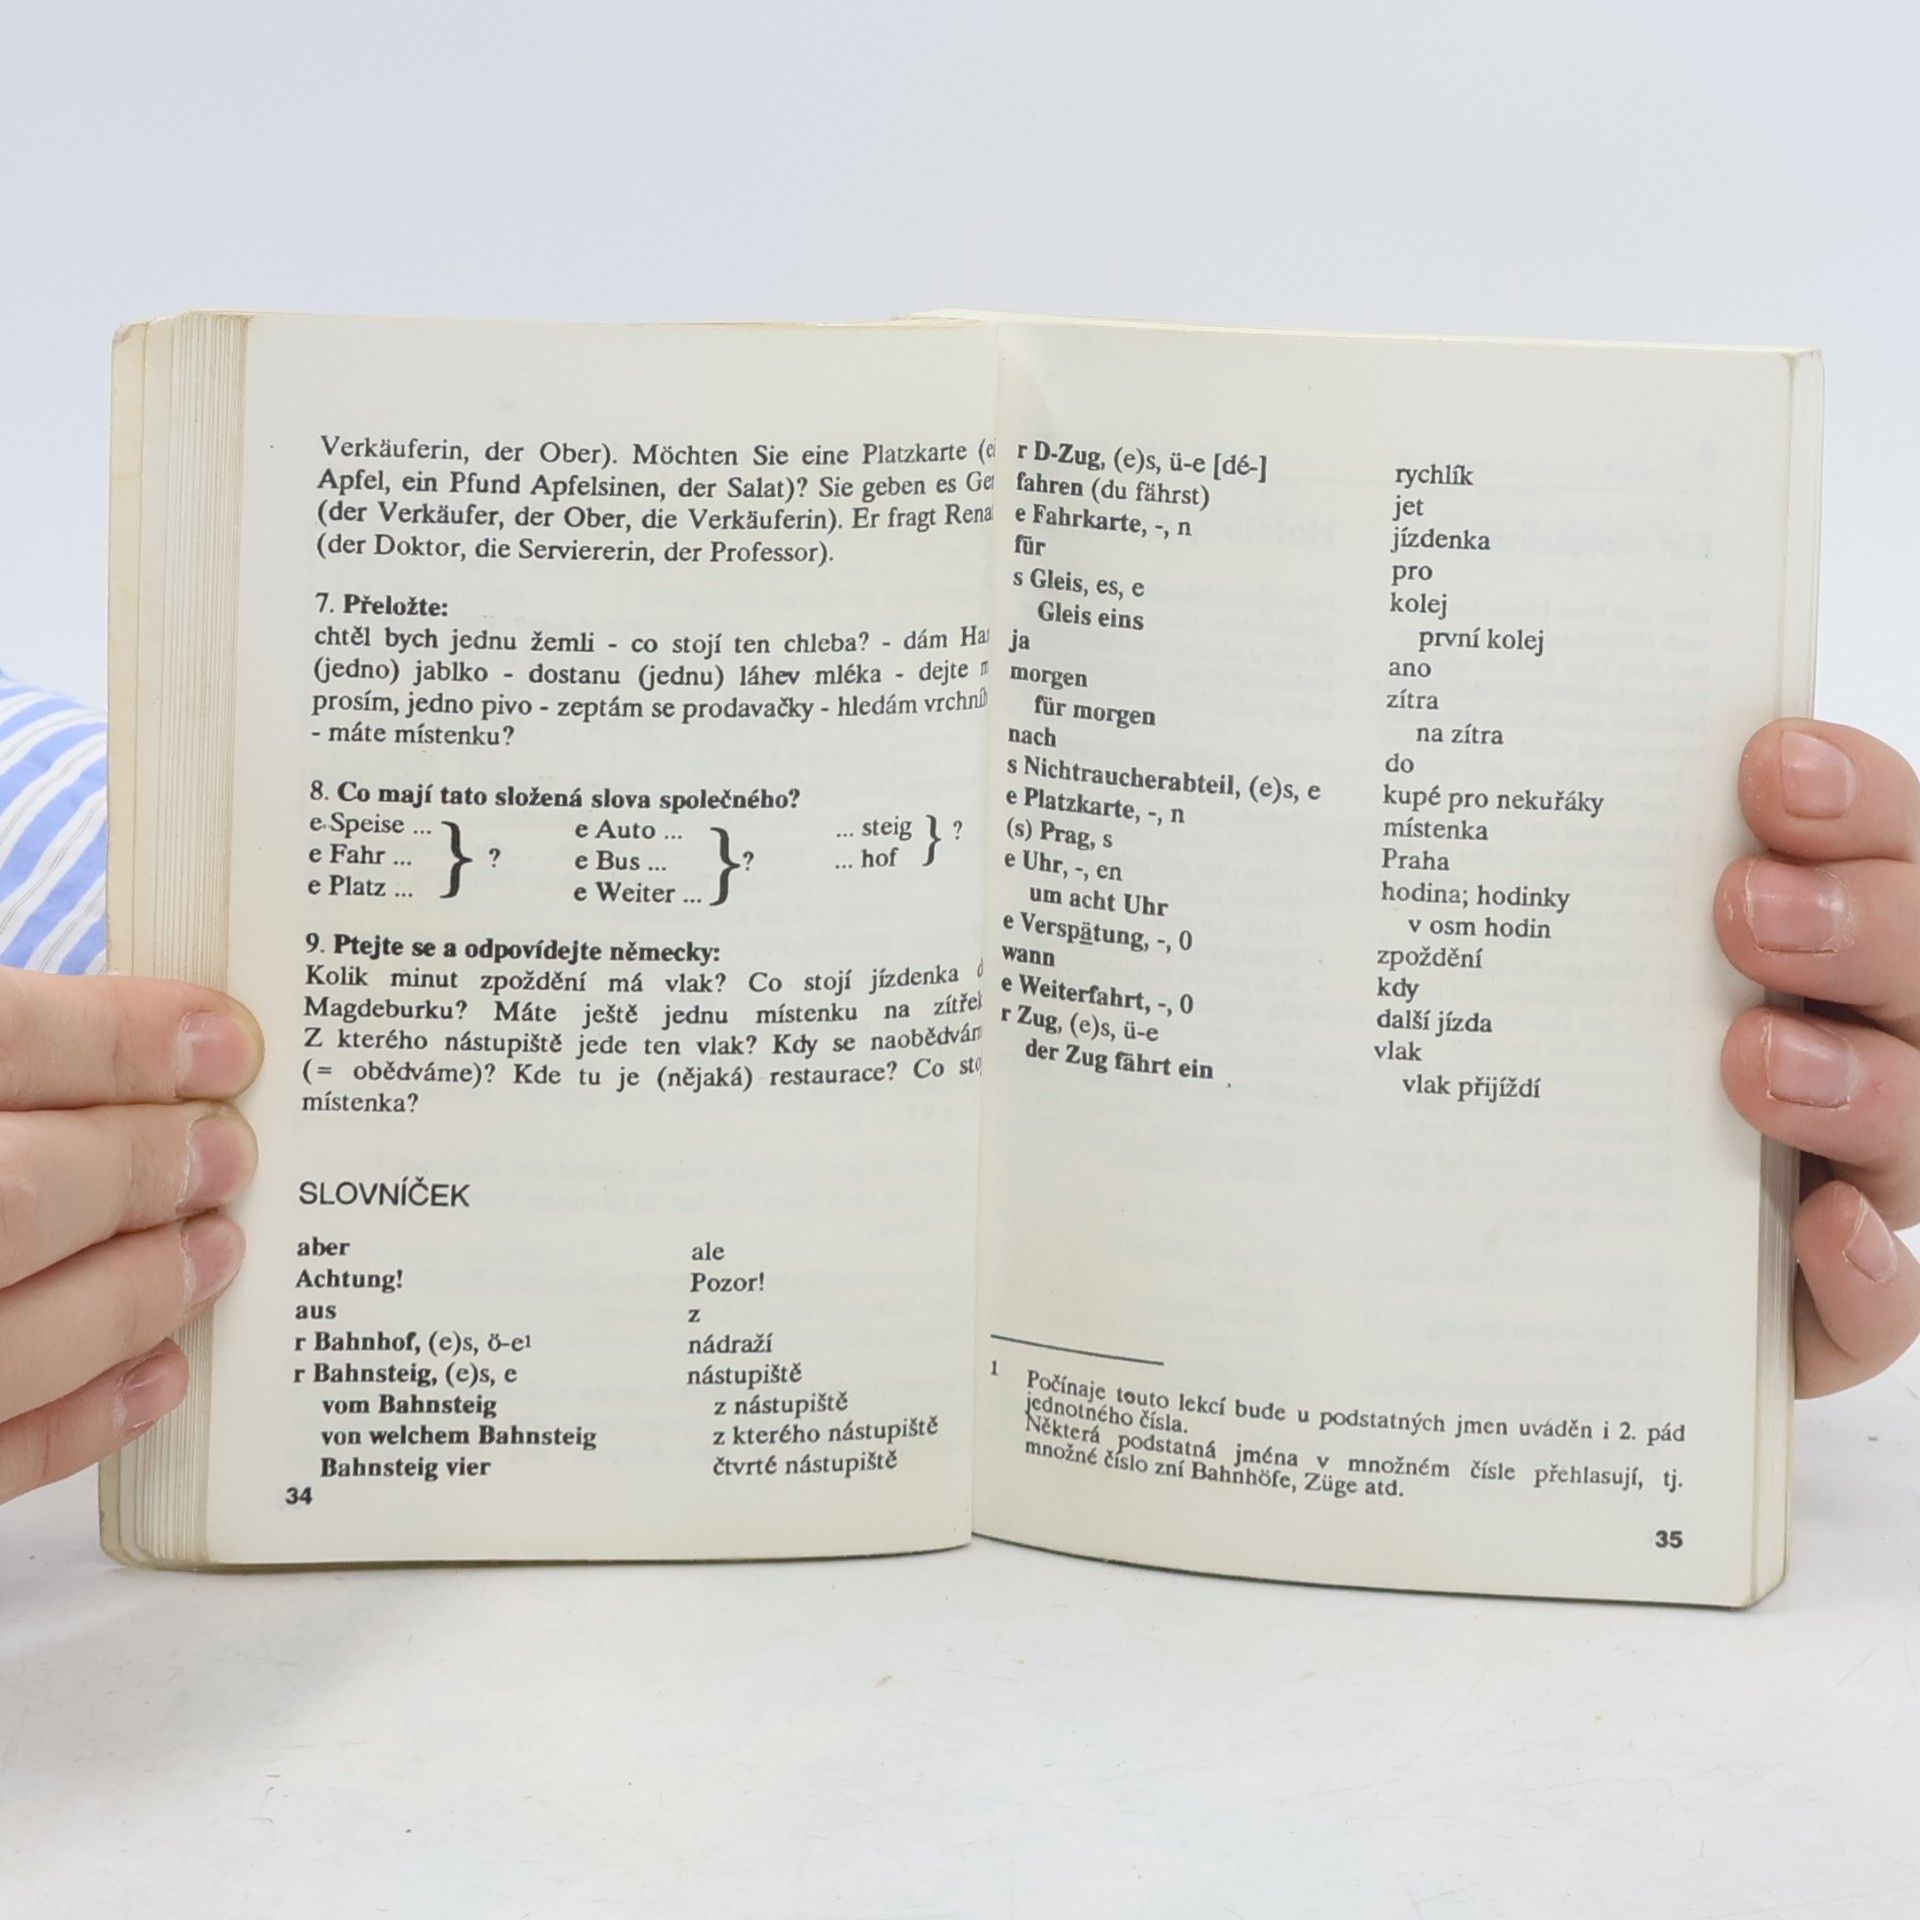 Verkäuferin, der Ober). Möchten Sie eine Platzkarte
Apfel, ein Pfund Apfelsinen, der Salat)? Sie geben es
(der Verkäufer, der Ober, die Verkäuferin). Er fragt
(der Doktor, die Serviererin, der Professor).
7. Přeložte:
chtěl bych jednu žemli - co stojí ten chleba? - dám
(jedno) jablko - dostanu (jednu) láhev mléka - dejte
prosím, jedno pivo - zeptám se prodavačky - hledám
- máte místenku?
8. Co mají tato složená slova společného?
e Speise ... } ? e Auto ... } ? ... steig } ?
e Fahr ... e Bus ... ... hof
e Platz ... e Weiter ...
9. Ptejte se a odpovídejte německy:
Kolik minut zpoždění má vlak? Co stojí jízdenka
Magdeburku? Máte ještě jednu místenku na
Z kterého nástupiště jede ten vlak? Kdy se
(= obědváme)? Kde tu je (nějaká) restaurace? Co
místenka?
SLOVNÍČEK
aber ale
Achtung! Pozor!
aus z
r Bahnhof, (e)s, ö-e1 nádraží
r Bahnsteig, (e)s, e nástupiště
vom Bahnsteig z nástupiště
von welchem Bahnsteig z kterého nástupiště
Bahnsteig vier čtvrté nástupiště
34
r D-Zug, (e)s, ü-e [dé-] rychlík
fahren (du fährst) jet
e Fahrkarte, -, n jízdenka
für pro
s Gleis, es, e kolej
Gleis eins první kolej
ja ano
morgen zítra
für morgen na zítra
nach do
s Nichtraucherabteil, (e)s, e kupé pro nekuřáky
e Platzkarte, -, n místenka
(s) Prag, s Praha
e Uhr, -, en hodina; hodinky
um acht Uhr v osm hodin
e Verspätung, -, 0 zpoždění
wann kdy
e Weiterfahrt, -, 0 další jízda
r Zug, (e)s, ü-e vlak
der Zug fährt ein vlak přijíždí
1 Počínaje touto lekcí bude u podstatných jmen uváděn i 2. pád
jednotného čísla.
Některá podstatná jména v množném čísle přehlasují, tj.
množné číslo zní Bahnhöfe, Züge atd.
35